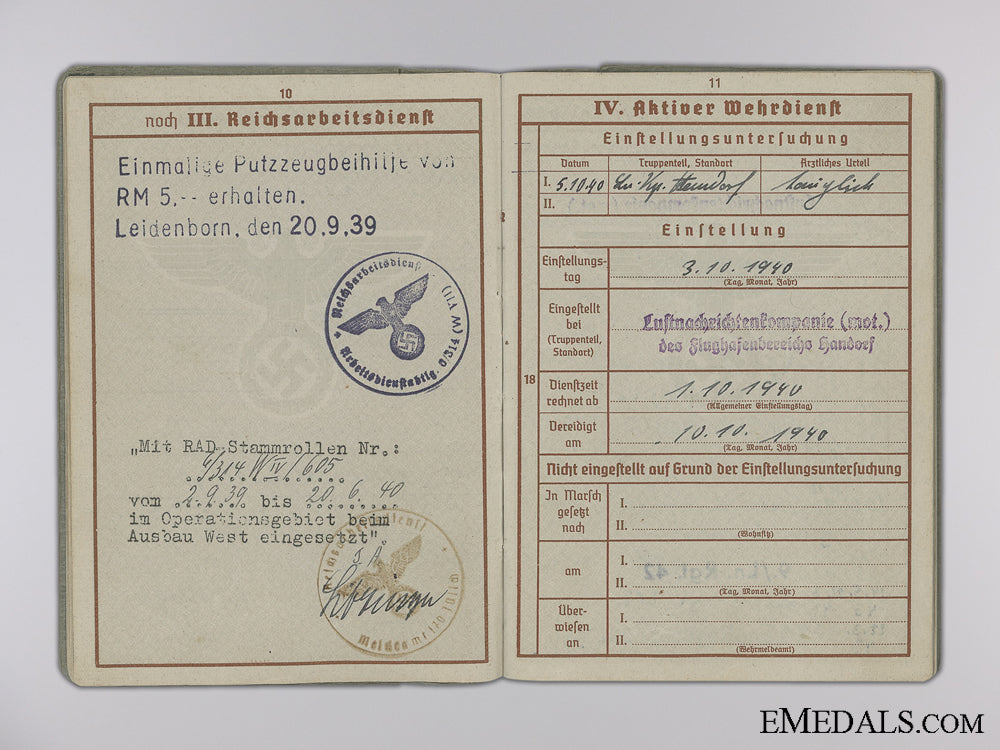 10
noch III. Reichsarbeitsdienst
Einmalige Putzzeugbeihilfe von
RM 5,-- erhalten.
Leidenborn, den 20.9.39
Reichsarbeitsdienst
Arbeitsdienstabtlg. 6/314 (W VII)
„Mit RAD-Stammrollen Nr.:
/605
von 2.9.39 bis 20.6.40
im Operationsgebiet beim
Ausbau West eingesetzt".
J.A.
11
IV. Aktiver Wehrdienst
Einstellungsuntersuchung
Datum Truppenteil, Standort Ärztliches Urteil
I. 5.10.40 Ln.-Kp. Handorf tauglich
II.
Einstellung
Einstellungs-
tag
3.10.1940
(Tag, Monat, Jahr)
Eingestellt
bei
(Truppenteil,
Standort)
Luftnachrichtenkompanie (mot.)
des Flughafenbereichs Handorf
18
Dienstzeit
rechnet ab
1.10.1940
(Allgemeiner Einstellungstag)
Vereidigt
am
10.10.1940
(Tag, Monat, Jahr)
Nicht eingestellt auf Grund der Einstellungsuntersuchung
In Marsch
gesetzt
nach
I.
II.
(Wohnsitz)
am
I.
II.
(Tag, Monat, Jahr)
Über-
wiesen
an
I.
II.
(Wehrmeldeamt)
EMEDALS.COM